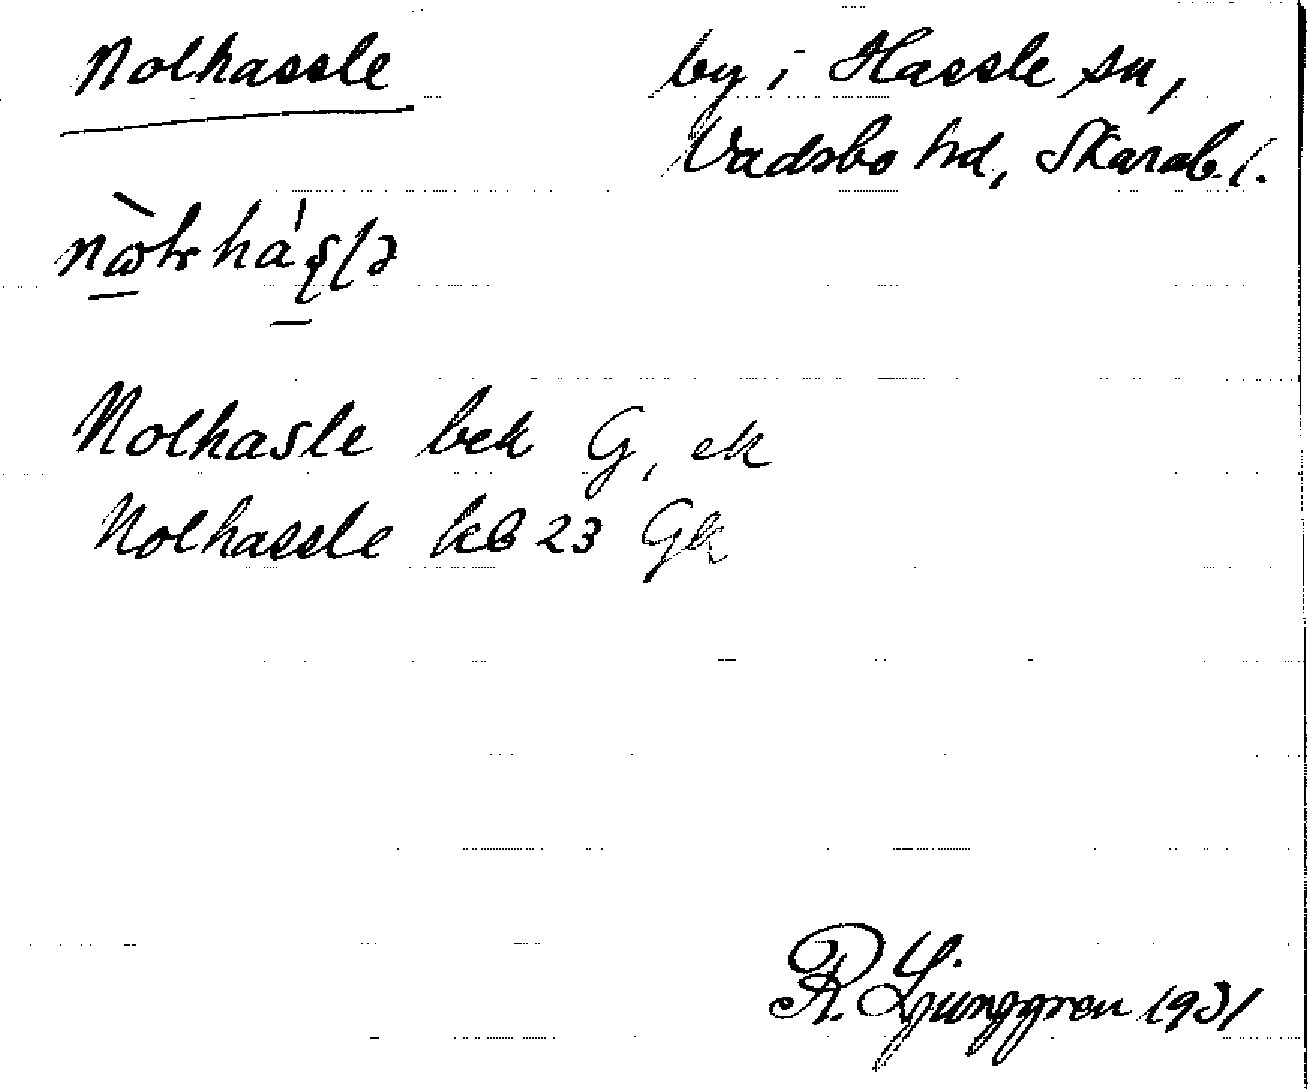 Nolhassle
by i Hassle sn,
Vadsbo hd, Skarab. l.
Nolhasle bek G, ek
Nolhassle kb 23 Gk
R. Ljunggren 1931